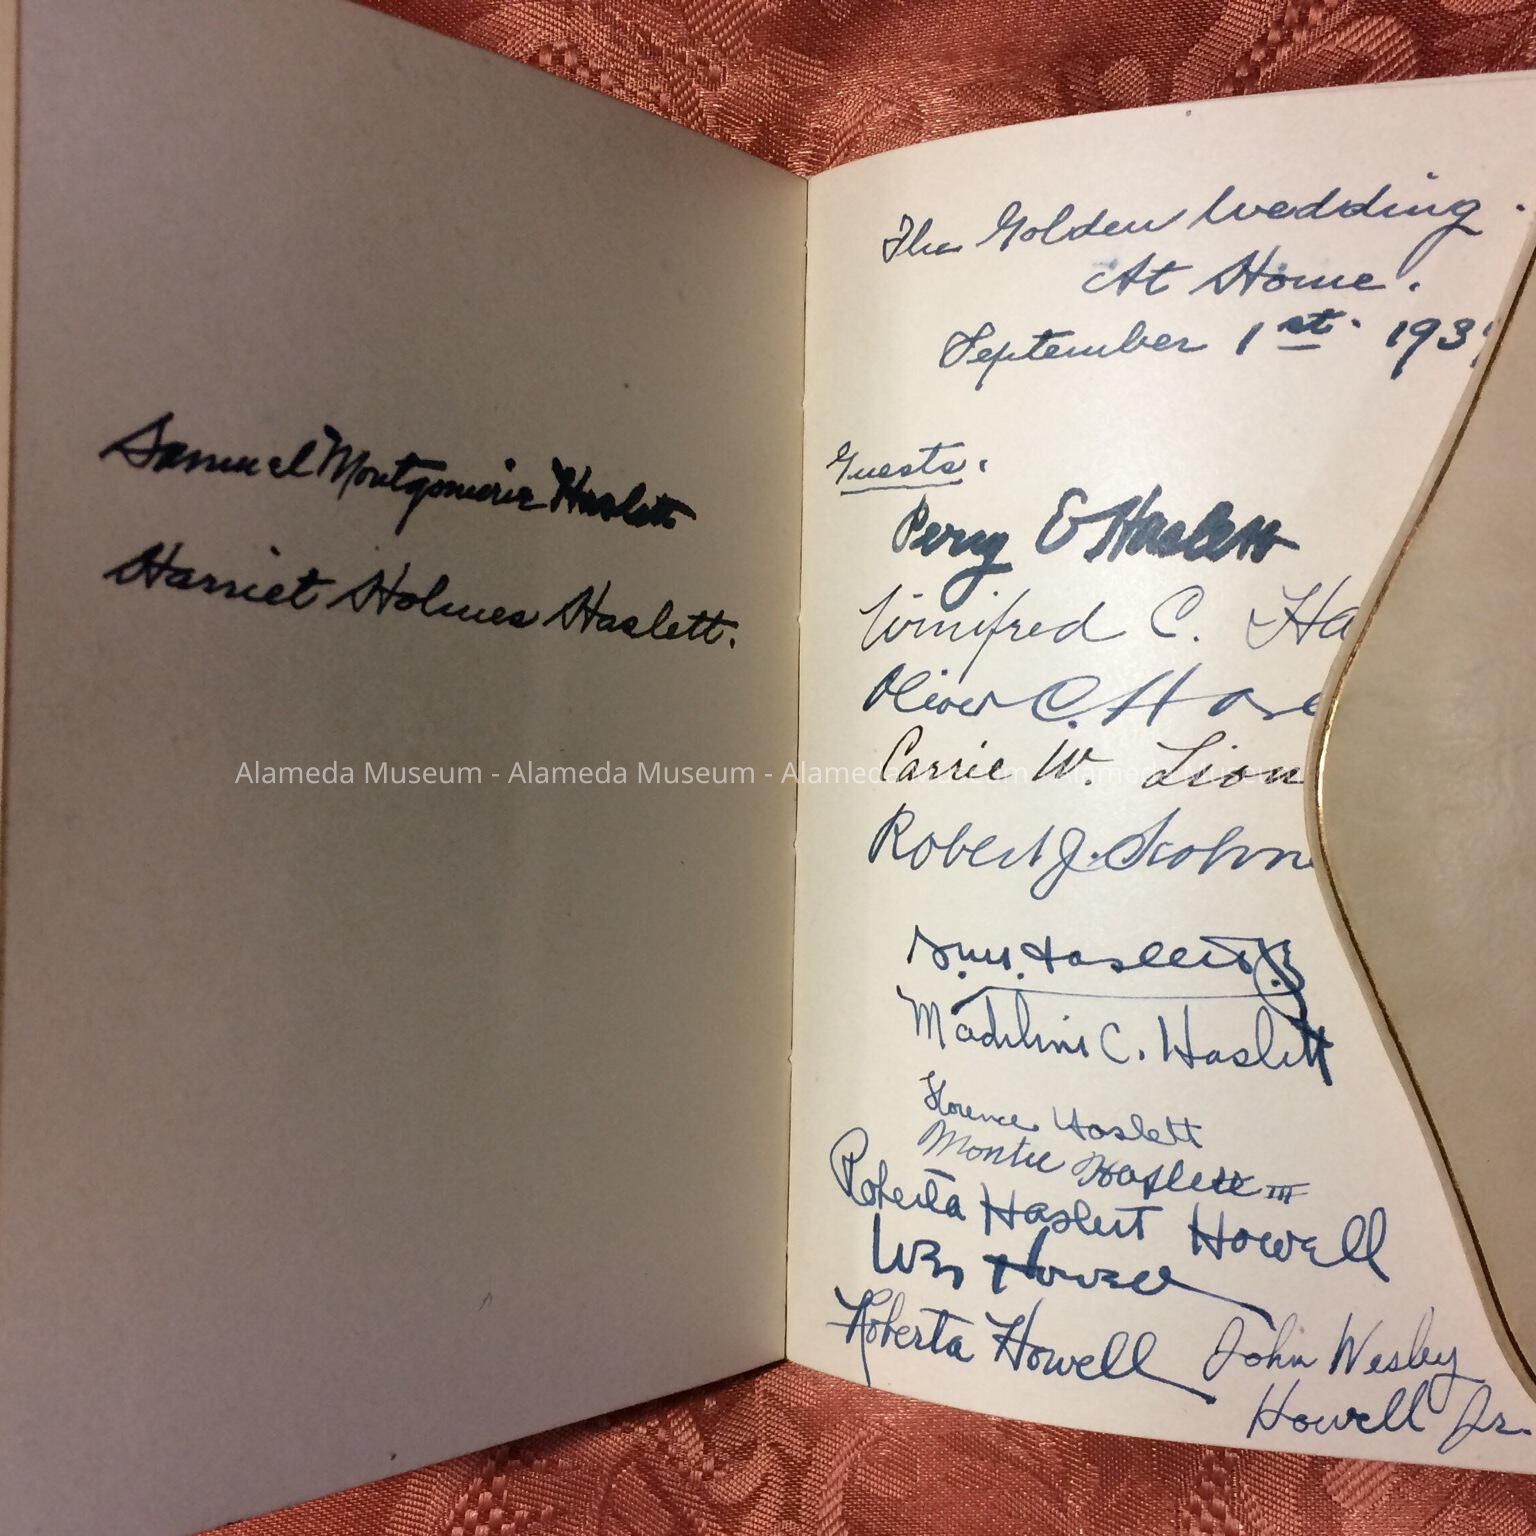 Samuel Montgomerie Haslett
Harriet Holmes Haslett.
The Golden Wedding.
At Home.
September 1st. 193
Guests.
Perry E Haslett
Winifred C. Ha
Oliver C. Hasl
Carrie W. Lion
Robert J.
S.M. Haslett Jr
Madeline C. Haslett
Florence Haslett
Montie Haslett III
Roberta Haslett Howell
Wes Howell
Roberta Howell John Wesley
Howell Jr.
Alameda Museum - Alameda Museum - Alameda Museum - Alameda Museum